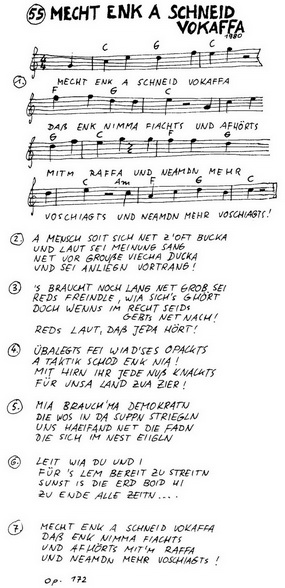 55 MECHT ENK A SCHNEID
VOKAFFA
1980
C G C G
1. MECHT ENK A SCHNEID VOKAFFA
F G C F
DAß ENK NIMMA FIACHTS UND AFHÖRTS
G C G F G
MITM RAFFA UND NEAMDN MEHR
C Am F G C
VOSCHIAGTS UND NEAMDN MEHR VOSCHIAGTS!
2. A MENSCH SOIT SICH NET Z'OFT BUCKA
UND LAUT SEI MEINUNG SANG
NET VOR GROUßE VIECHA DUCKA
UND SEI ANLIEGN VORTRANG!
3. 'S BRAUCHT NOCH LANG NET GROB SEI
REDS FREINDLE, WIA SICH'S GHÖRT
DOCH WENNS IM RECHT SEIDS
GEBTS NET NACH!
REDS LAUT, DAß JEDA HÖRT!
4. ÜBALEGTS FEI WIAD'SES OPACKTS
A TAKTIK SCHOD ENK NIA!
MIT HIRN IHR JEDE NUß KNACKTS
FÜR UNSA LAND ZUA ZIER!
5. MIA BRAUCH'MA DEMOKRATN
DIE WOS IN DA SUPPN STRIEGLN
UNS HAEIFAND NET DE FADN
DIE SICH IM NEST EIIGLN
6. LEIT WIA DU UND I
FÜR 'S LEM BEREIT ZU STREITN
SUNST IS DIE ERD BOID HI
ZU ENDE ALLE ZEITN....
7. MECHT ENK A SCHNEID VOKAFFA
DAß ENK NIMMA FIACHTS
UND AFHÖRTS MIT'M RAFFA
UND NEAMDN MEHR VOSCHIAGTS!
op. 172